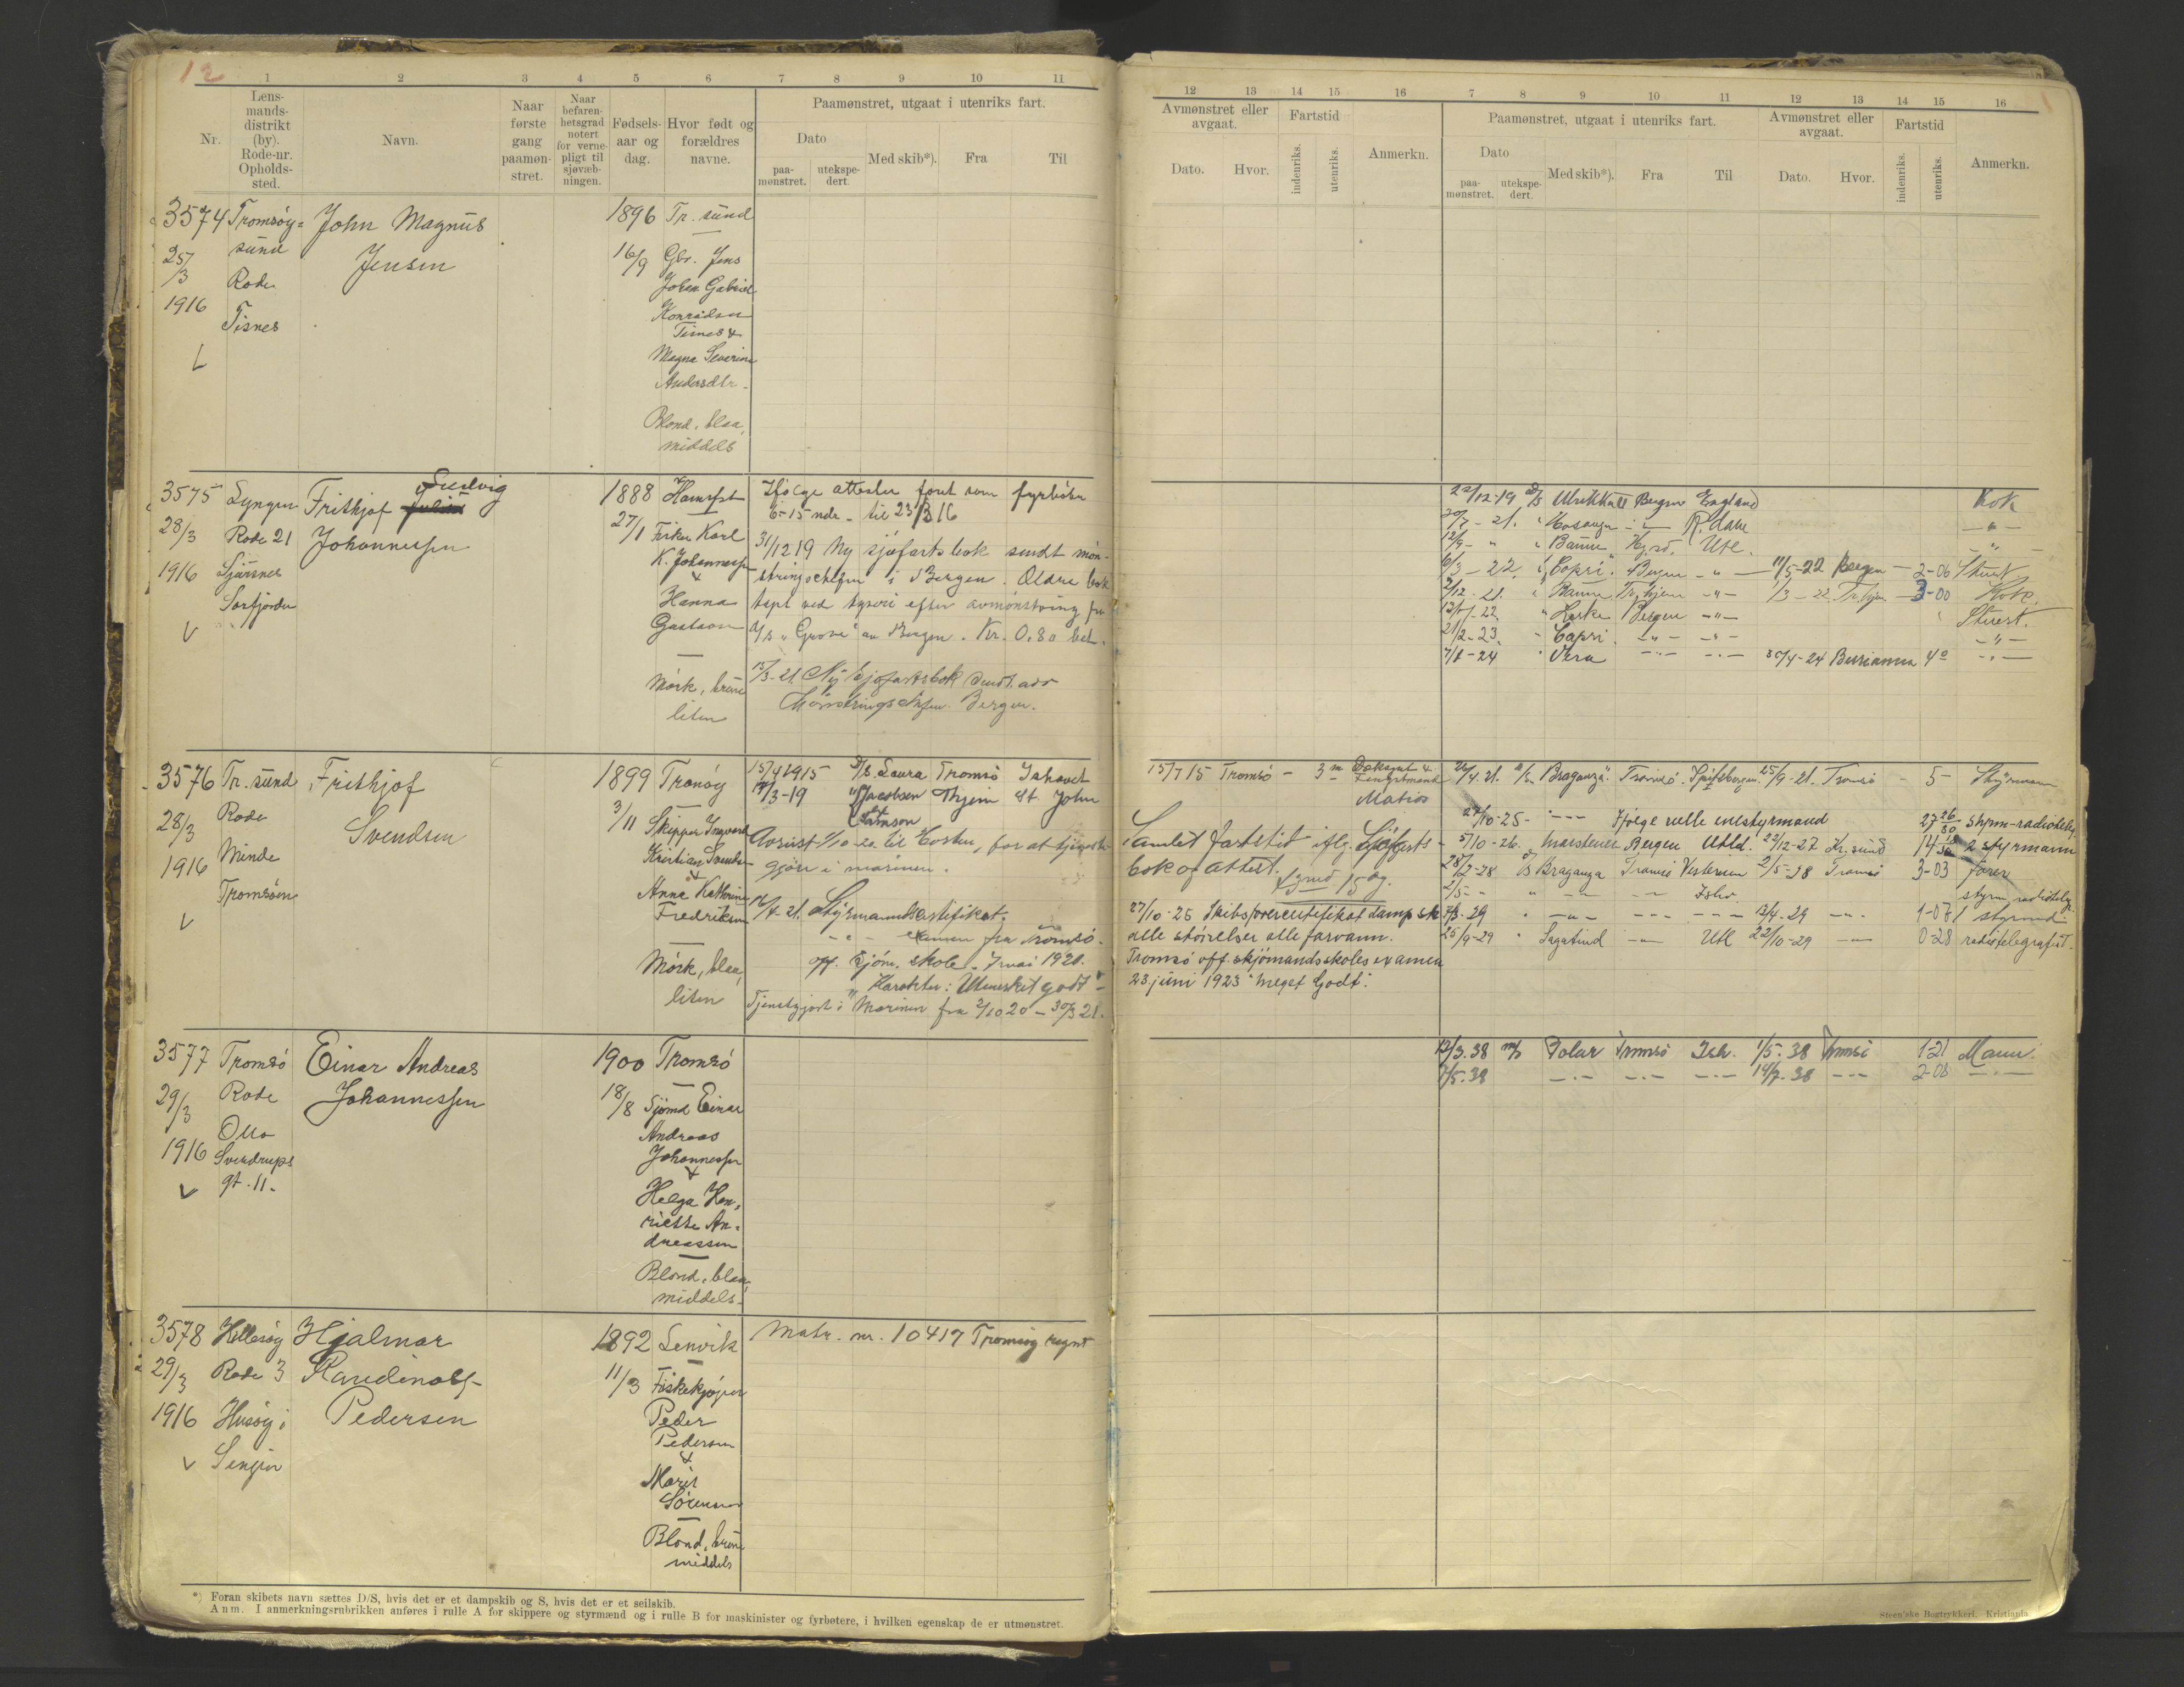 12
1 2 3 4 5 6 7 8 9 10 11
Nr.
Lens-
mands-
distrikt
(by).
Rode-nr.
Opholds-
sted.
Navn.
Naar
første
gang
paamøn-
stret.
Naar
befaren-
hetsgrad
notert
for verne-
pligt til
sjøvæb-
ningen.
Fødsels-
aar og
dag.
Hvor født og
forældres
navne.
Paamønstret, utgaat i utenriks fart.
Dato
paa-
mønstret.
utekspe-
dert.
Med skib*).
Fra
Til
3574 Tromsøy= John Magnus 1896 Tr. sund
sund
25/3 Jensen 16/9 Gbr. Jens
Rode Johan Gabriel
1916 Konradsen
Tisnes Tisnes &
Magna Severine
Andersdtr.
Blond, blaa,
middels
3575 Lyngen Frithjof Ludvig 1888
28/3 Rode 21 Johannessen 27/1 Fisker Karl
K. Johannessen
1916 &
Sørfjorden Hanna
Mørk, brune
liten
Ifølge attester fort som fyrbøter
6-15 mdr. til 23/3 16
31/12 19 Ny sjøfartsbok sendt møn-
stringschefen i Bergen. Ældre bok
tapt ved tyveri efter avmønstring fra
Bergen. Kr. 0,80 bet.
15/3-21. Ny sjøfartsbok sendt
Mønstringschefen Bergen.
3576 Tr. sund Frithjof 1899 Tranøy
Rode 3/11 Skipper Ingvard
28/3 Svendsen Kristian Svendsen
Minde &
1916 Anna Kathrine
Tromsøen Fredriksen
Mørk, blaa,
liten
15/4 1915 Laura Tromsø Ishavet
14/3-19 Jacobsen Thjem St. John
Avreist 1/10-20 til Horten, for at tjeneste-
gjøre i marinen.
16/4-21. Styrmandscertifikat.
- " - examen fra Tromsø
off. sjøm. skole. mai 1920.
Karakter: Utmerket godt
Tjenstgjort i Marinen fra 2/10 20 - 30/3 21.
3577 Tromsø Einar Andreas 1900 Tromsø
29/3 Rode Johannessen 18/8 Sjømd Einar
Otto Andreas
1916 Sverdrups Johannessen
gt. 11. &
Helga Hen-
riette An-
dreassen
Blond, blaa,
middels
3578 Hillesøy Hjalmar 1892 Lenvik
29/3 Rode 3 11/3 Fiskekjøper
1916 Husøy i Pedersen Peder
Senjen Pedersen
&
Marit
Sørensen
Blond, brune
middels
Matr. nr. 10417 Tromsøy
*) Foran skibets navn sættes D/S, hvis det er et dampskib og S, hvis det er et seilskib.
Anm. I anmerkningsrubrikken anføres i rulle A for skippere og styrmænd og i rulle B for maskinister og fyrbøtere, i hvilken egenskap de er utmønstret.
12 13 14 15 16 7 8 9 10 11 12 13 14 15 16
Avmønstret eller
avgaat.
Dato. Hvor.
Fartstid
indenriks.
utenriks.
Anmerkn.
Paamønstret, utgaat i utenriks fart.
Dato
paa-
mønstret.
utekspe-
dert.
Med skib*).
Fra
Til
Avmønstret eller
avgaat.
Dato. Hvor.
Fartstid
indenriks.
utenriks.
Anmerkn.
22/12-19 Bergen England Kok
R.dam - " -
Utl. - " -
6/3-22 Capri Bergen - " - 11/5-22 Bergen 2-06 Stuert
2/12-21 Tr.hjem - " - 1/3-22 Tr.hjem 3-00 Kok
Bergen - " - Stuert.
21/2-23 Capri - " - - " - - " -
Vera - " - - " - 30/4-24
15/7 15 Tromsø - 3 m
26/4-21. Braganza Tromsø Spitsbergen 25/9-21. Tromsø - 5 - Styrmann
27/10-25 Ifølge rulle enestyrmand
Samlet fartstid iflg. Sjøfarts-
bok og attest.
5/10-26 Bergen Utld. 22/12-27 Kr.sund 2 styrmann
28/2-28 Braganza Tromsø Vesterisen 2/5-28 Tromsø 3-03 fører
2/5 - " Ishv.
27/10-25 Skibsførercertifikat dampsk
alle størrelser alle farvann.
12/4-29 1-07 1 styrmd
25/9-29 Sagatind Utl 22/10-29 0-28 radiotelegrafist.
Tromsø off. sjømandsskoles examen
23 juni 1923 "Meget Godt".
12/3.38 m/s Polar Tromsø Ish. 1/5.38 Tromsø 1-21 Mann
7/5.38 - " - - " - - " - 14/7.38 - " - 2-08 - " -
Steen'ske Bogtrykkeri, Kristiania